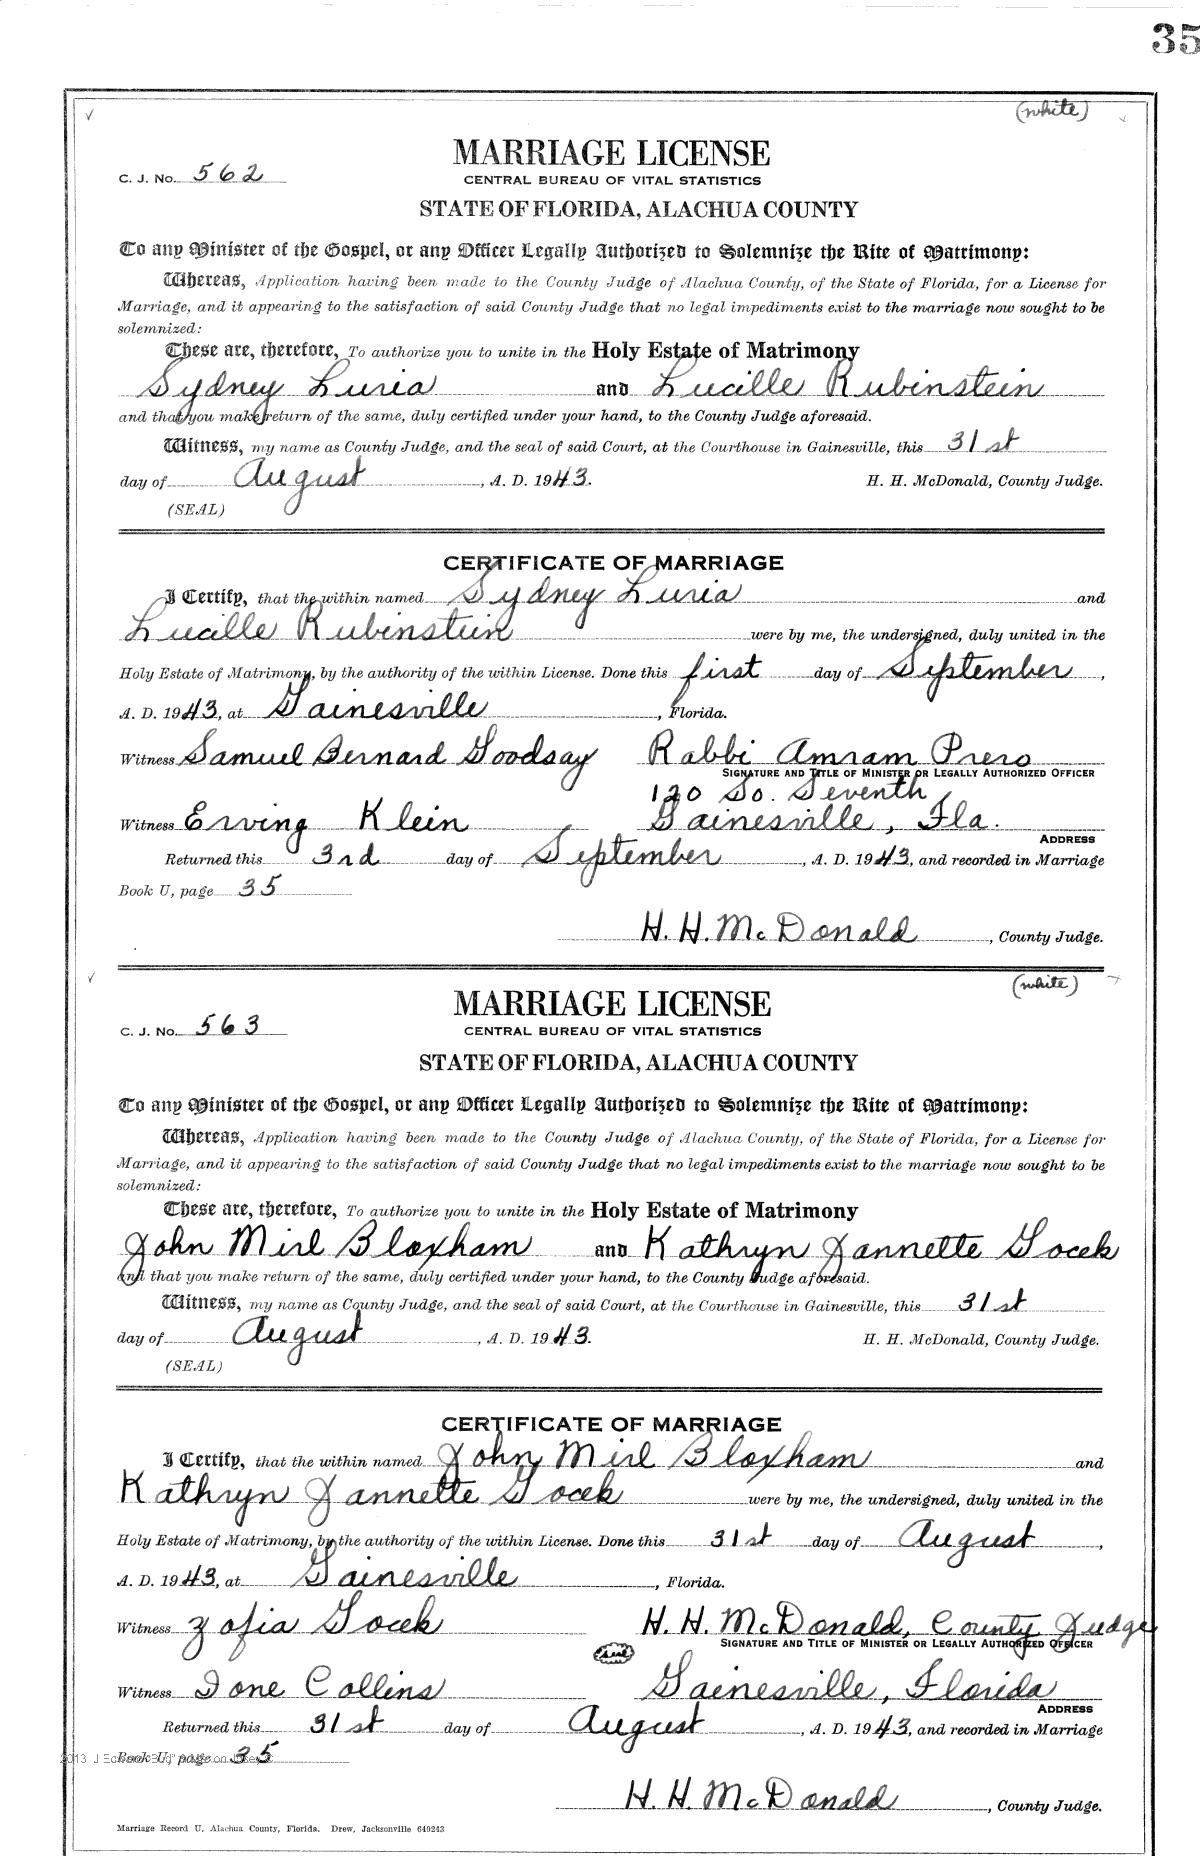 35
(white)
MARRIAGE LICENSE
C. J. No. 562
CENTRAL BUREAU OF VITAL STATISTICS
STATE OF FLORIDA, ALACHUA COUNTY
To any Minister of the Gospel, or any Officer Legally Authorized to Solemnize the Rite of Matrimony:
Whereas, Application having been made to the County Judge of Alachua County, of the State of Florida, for a License for
Marriage, and it appearing to the satisfaction of said County Judge that no legal impediments exist to the marriage now sought to be
solemnized:
These are, therefore, To authorize you to unite in the Holy Estate of Matrimony
Sydney Luria and Lucille Rubinstein
and that you make return of the same, duly certified under your hand, to the County Judge aforesaid.
Witness, my name as County Judge, and the seal of said Court, at the Courthouse in Gainesville, this 31st
day of August, A. D. 1943. H. H. McDonald, County Judge.
(SEAL)
CERTIFICATE OF MARRIAGE
I Certify, that the within named Sydney Luria and
Lucille Rubinstein were by me, the undersigned, duly united in the
Holy Estate of Matrimony, by the authority of the within License. Done this first day of September,
A. D. 1943, at Gainesville, Florida.
Witness Samuel Bernard Goodsay Rabbi Amram Prero
SIGNATURE AND TITLE OF MINISTER OR LEGALLY AUTHORIZED OFFICER
120 So. Seventh
Witness Erving Klein Gainesville, Fla.
ADDRESS
Returned this 3rd day of September, A. D. 1943, and recorded in Marriage
Book U, page 35
H. H. McDonald, County Judge.
(white)
MARRIAGE LICENSE
C. J. No. 563
CENTRAL BUREAU OF VITAL STATISTICS
STATE OF FLORIDA, ALACHUA COUNTY
To any Minister of the Gospel, or any Officer Legally Authorized to Solemnize the Rite of Matrimony:
Whereas, Application having been made to the County Judge of Alachua County, of the State of Florida, for a License for
Marriage, and it appearing to the satisfaction of said County Judge that no legal impediments exist to the marriage now sought to be
solemnized:
These are, therefore, To authorize you to unite in the Holy Estate of Matrimony
John Mirl Bloxham and Kathryn Jannette Gocek
and that you make return of the same, duly certified under your hand, to the County Judge aforesaid.
Witness, my name as County Judge, and the seal of said Court, at the Courthouse in Gainesville, this 31st
day of August, A. D. 1943. H. H. McDonald, County Judge.
(SEAL)
CERTIFICATE OF MARRIAGE
I Certify, that the within named John Mirl Bloxham and
Kathryn Jannette Gocek were by me, the undersigned, duly united in the
Holy Estate of Matrimony, by the authority of the within License. Done this 31st day of August,
A. D. 1943, at Gainesville, Florida.
Witness Zofia Gocek H. H. McDonald, County Judge
SIGNATURE AND TITLE OF MINISTER OR LEGALLY AUTHORIZED OFFICER
seal
Witness Ione Collins Gainesville, Florida
ADDRESS
Returned this 31st day of August, A. D. 1943, and recorded in Marriage
Book U, page 35
2013 J
H. H. McDonald, County Judge.
Marriage Record U, Alachua County, Florida. Drew, Jacksonville 649243